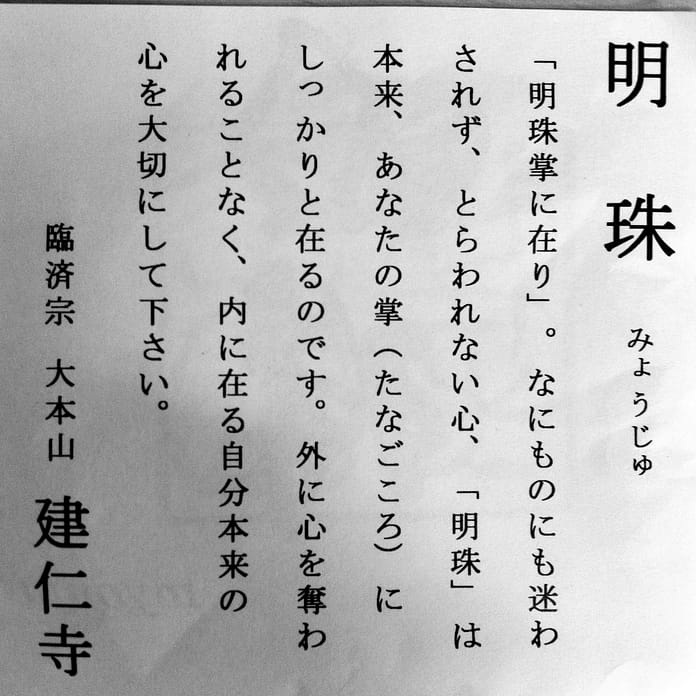 明珠 みょうじゅ
「明珠掌に在り」。なにものにも迷わ
されず、とらわれない心、「明珠」は
本来、あなたの掌(たなごころ)に
しっかりと在るのです。外に心を奪わ
れることなく、内に在る自分本来の
心を大切にして下さい。
臨済宗 大本山 建仁寺